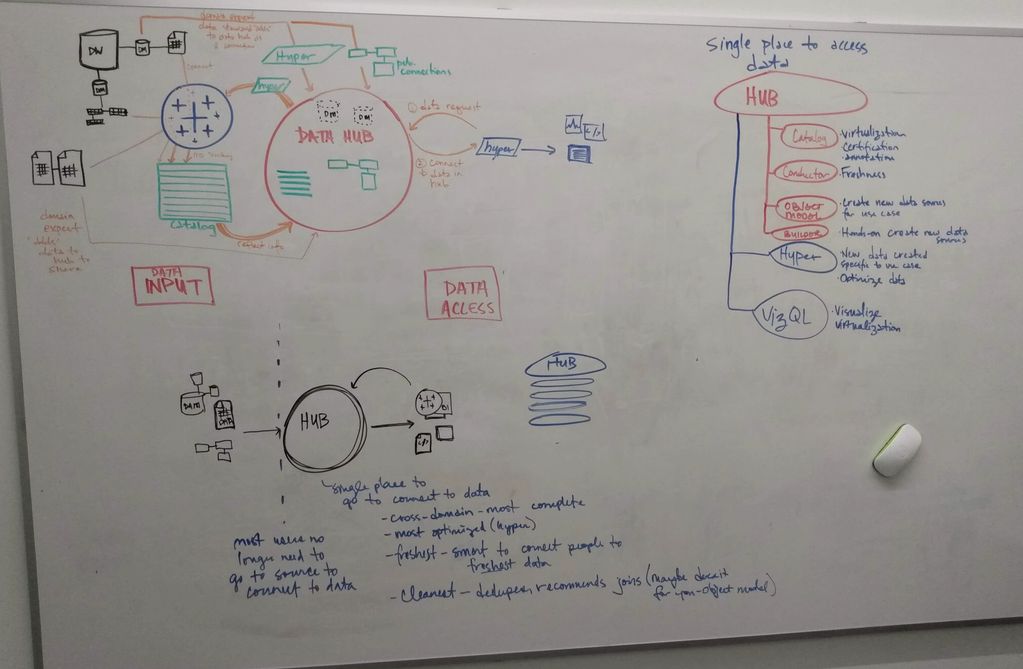 domain expert
data steward "adds"
to data hub as
a connection
DW
DM
connect
Hyper
hyper
pub.
connections
DM
DM
DATA HUB
① data request
② connect
to data in
hub
hyper
</>
catalog
domain
expert
"adds"
data to
hub to
share
DATA
INPUT
DATA
ACCESS
Single place to access
data
HUB
Catalog
· Virtualization
· Certification
· annotation
Conductor
· Freshness
OBJECT
MODEL
· Create new data sources
for use case
BUILDER
· Hands-on create new data
sources
Hyper
· New data created
specific to use case
· Optimize data
VizQL
· Visualize
virtualization
DATA
DATA
HUB
</>
HUB
single place to
go to connect to data
- cross-domain - most complete
- most optimized (hyper)
- freshest - smart to connect people to
freshest data
- cleanest - dedupes, recommends joins (maybe doesn't
for non-object model)
most users no
longer need to
go to source to
connect to data